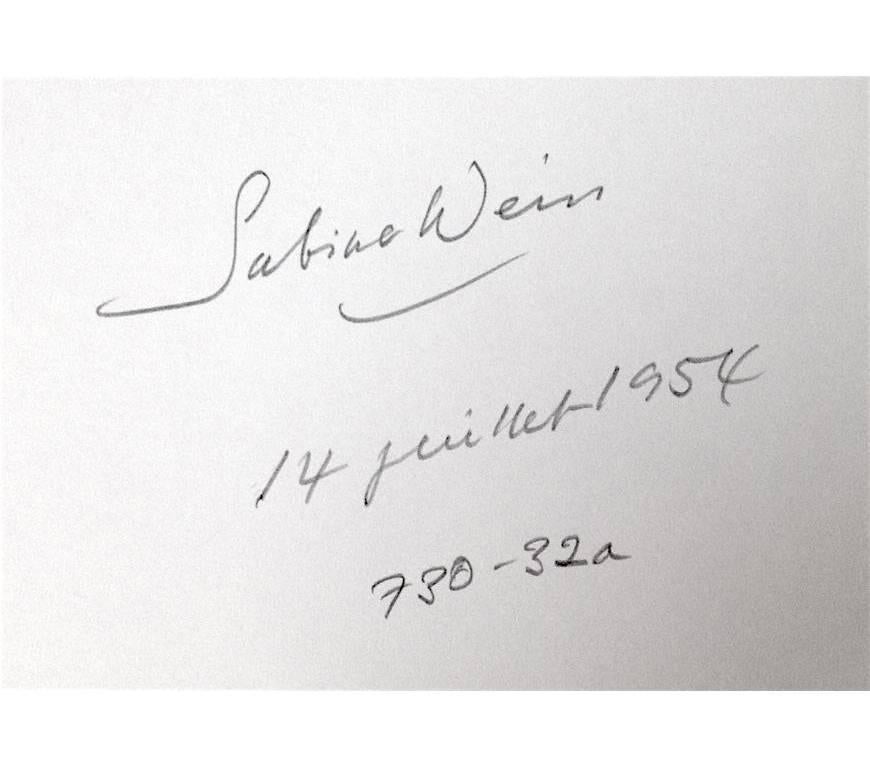 Sabine Weiss
14 juillet 1954
730-32a